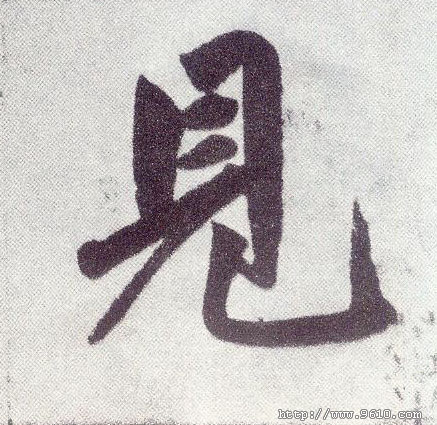 見
http://www.9610.com